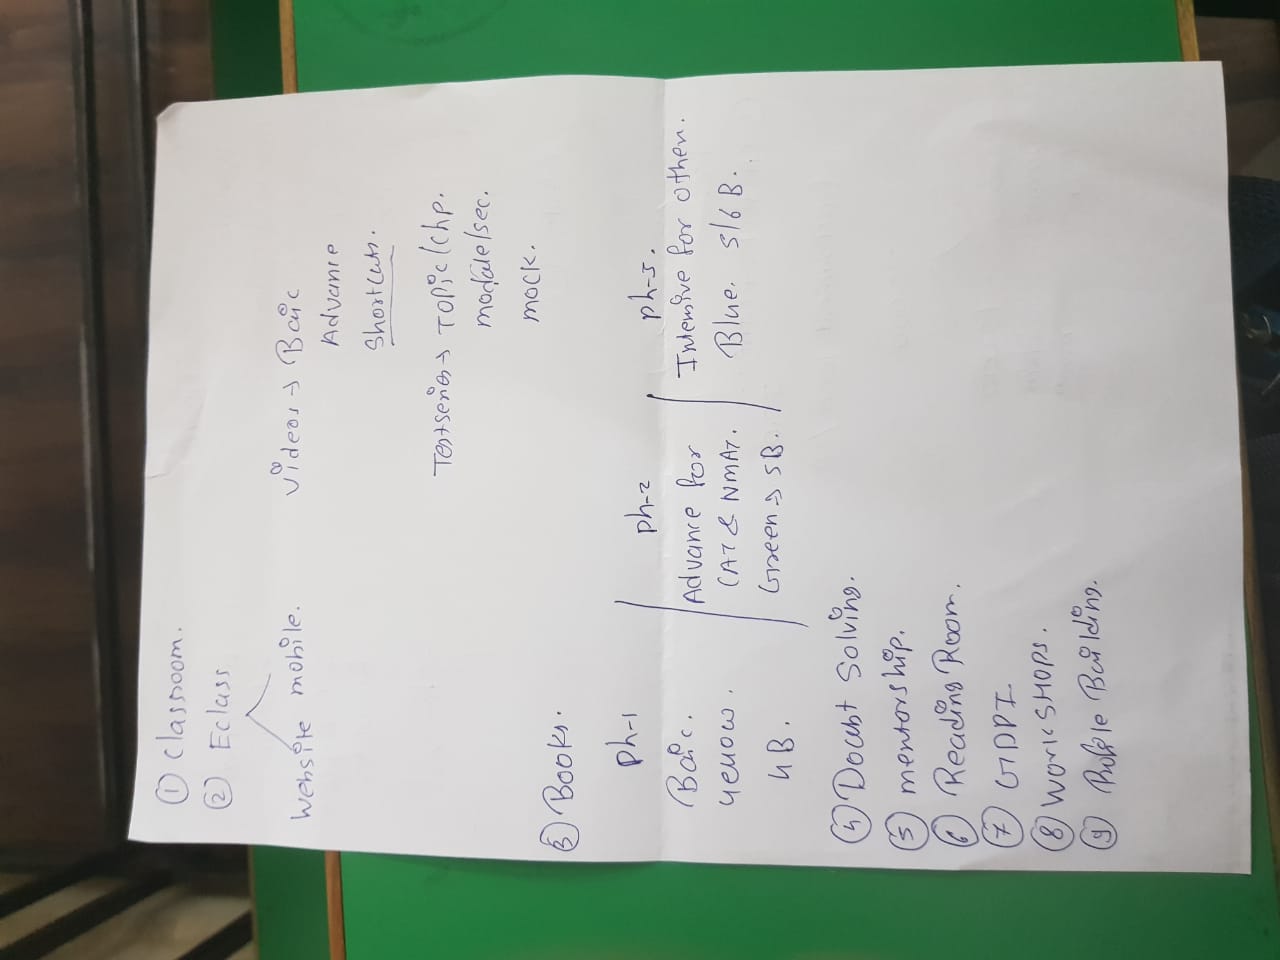 ① Classroom.
② Eclass
website mobile.
videos → Basic
Advance
Shortcuts.
Testseries → Topic/chp.
module/sec.
mock.
③ Books.
ph-1
Basic.
yellow.
4B.
ph-2
Advance for
CAT & NMAT.
Green → 5B.
ph-3.
Intensive for other.
Blue. 5/6 B.
④ Doubt Solving.
⑤ mentorship.
⑥ Reading Room.
⑦ GDPI.
⑧ WORKSHOPS.
⑨ Profile Building.